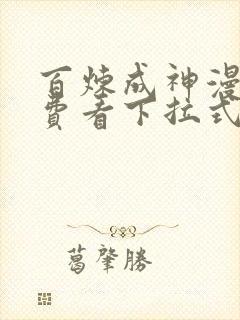 百炼成神漫
费看下拉式
葛肇勝